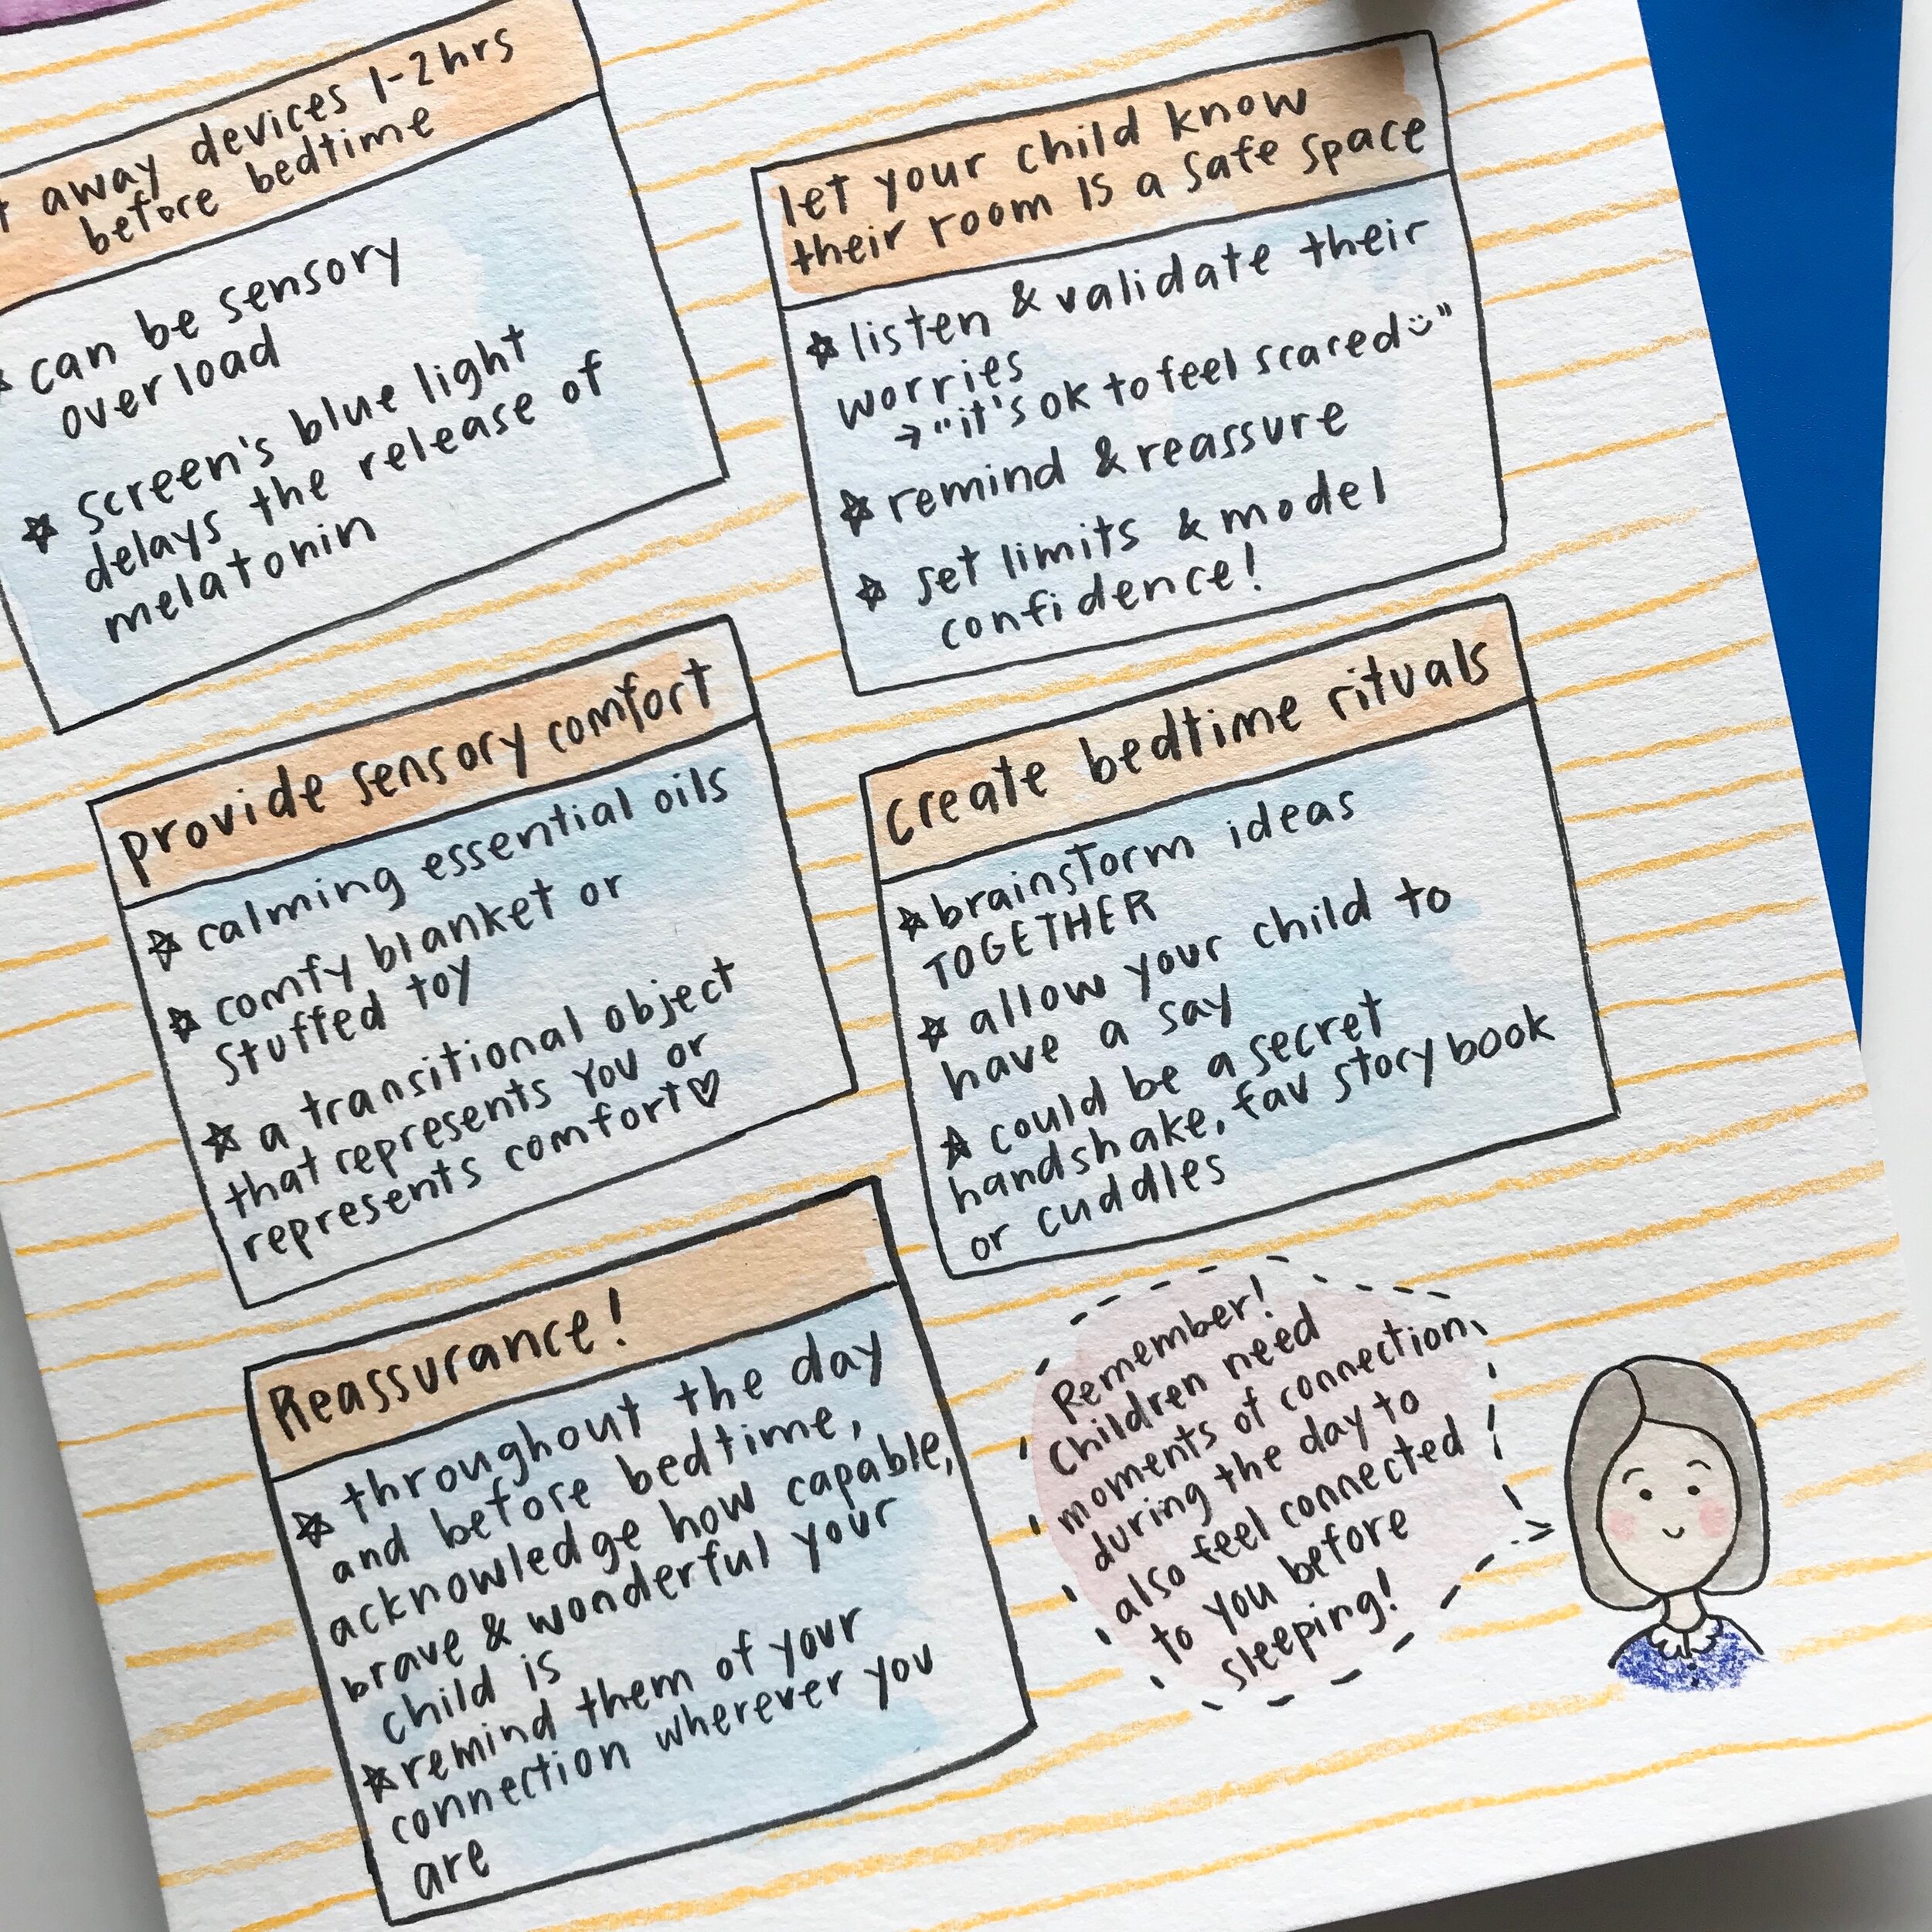 away devices 1-2hrs
before bedtime
can be sensory
overload
screen's blue light
delays the release of
melatonin
let your child know
their room IS a safe space
listen & validate their
worries
→ "it's ok to feel scared"
remind & reassure
set limits & model
confidence!
provide sensory comfort
calming essential oils
comfy blanket or
stuffed toy
a transitional object
that represents you or
represents comfort♡
create bedtime rituals
brainstorm ideas
TOGETHER
allow your child to
have a say
could be a secret
handshake, fav storybook
or cuddles
Reassurance!
throughout the day
and before bedtime,
acknowledge how capable,
brave & wonderful your
child is
remind them of your
connection wherever you
are
Remember!
Children need
moments of connection
during the day to
also feel connected
to you before
sleeping!